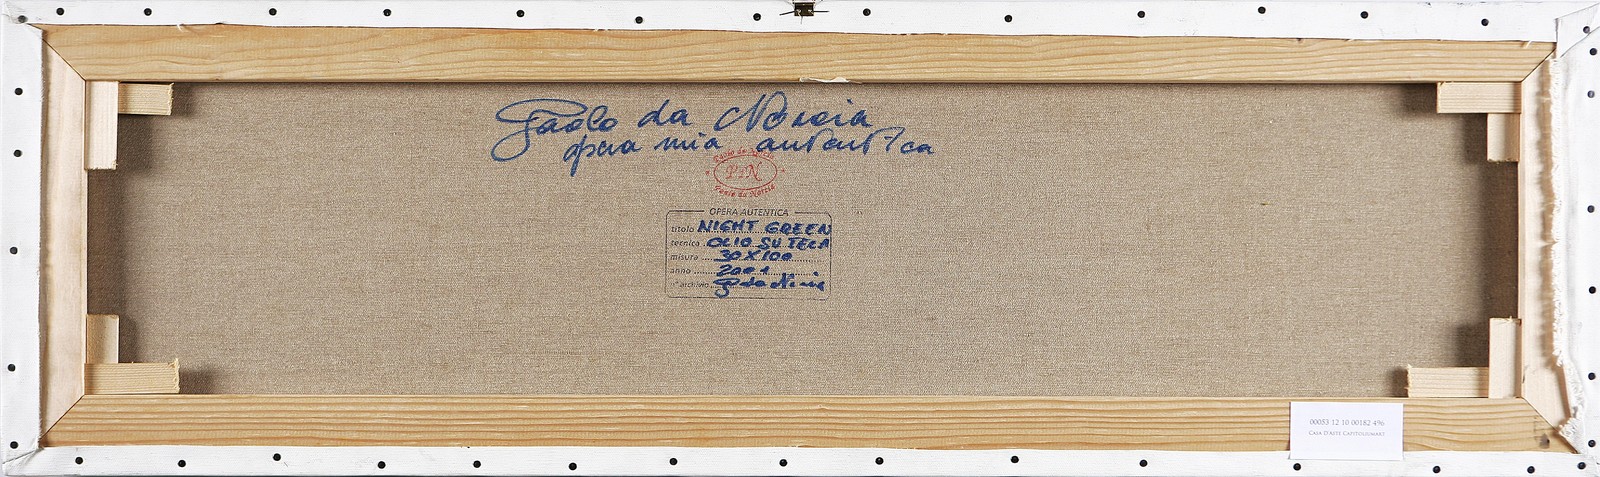 Paolo da Norcia
opera mia autentica
Paolo da Norcia
PdN
Paolo da Norcia
OPERA AUTENTICA
titolo NIGHT GREEN
tecnica OLIO SU TELA
misura 30X100
anno 2001
n° archivio
00053 12 10 00182 496
CASA D'ARTE CAPITOLIUMART